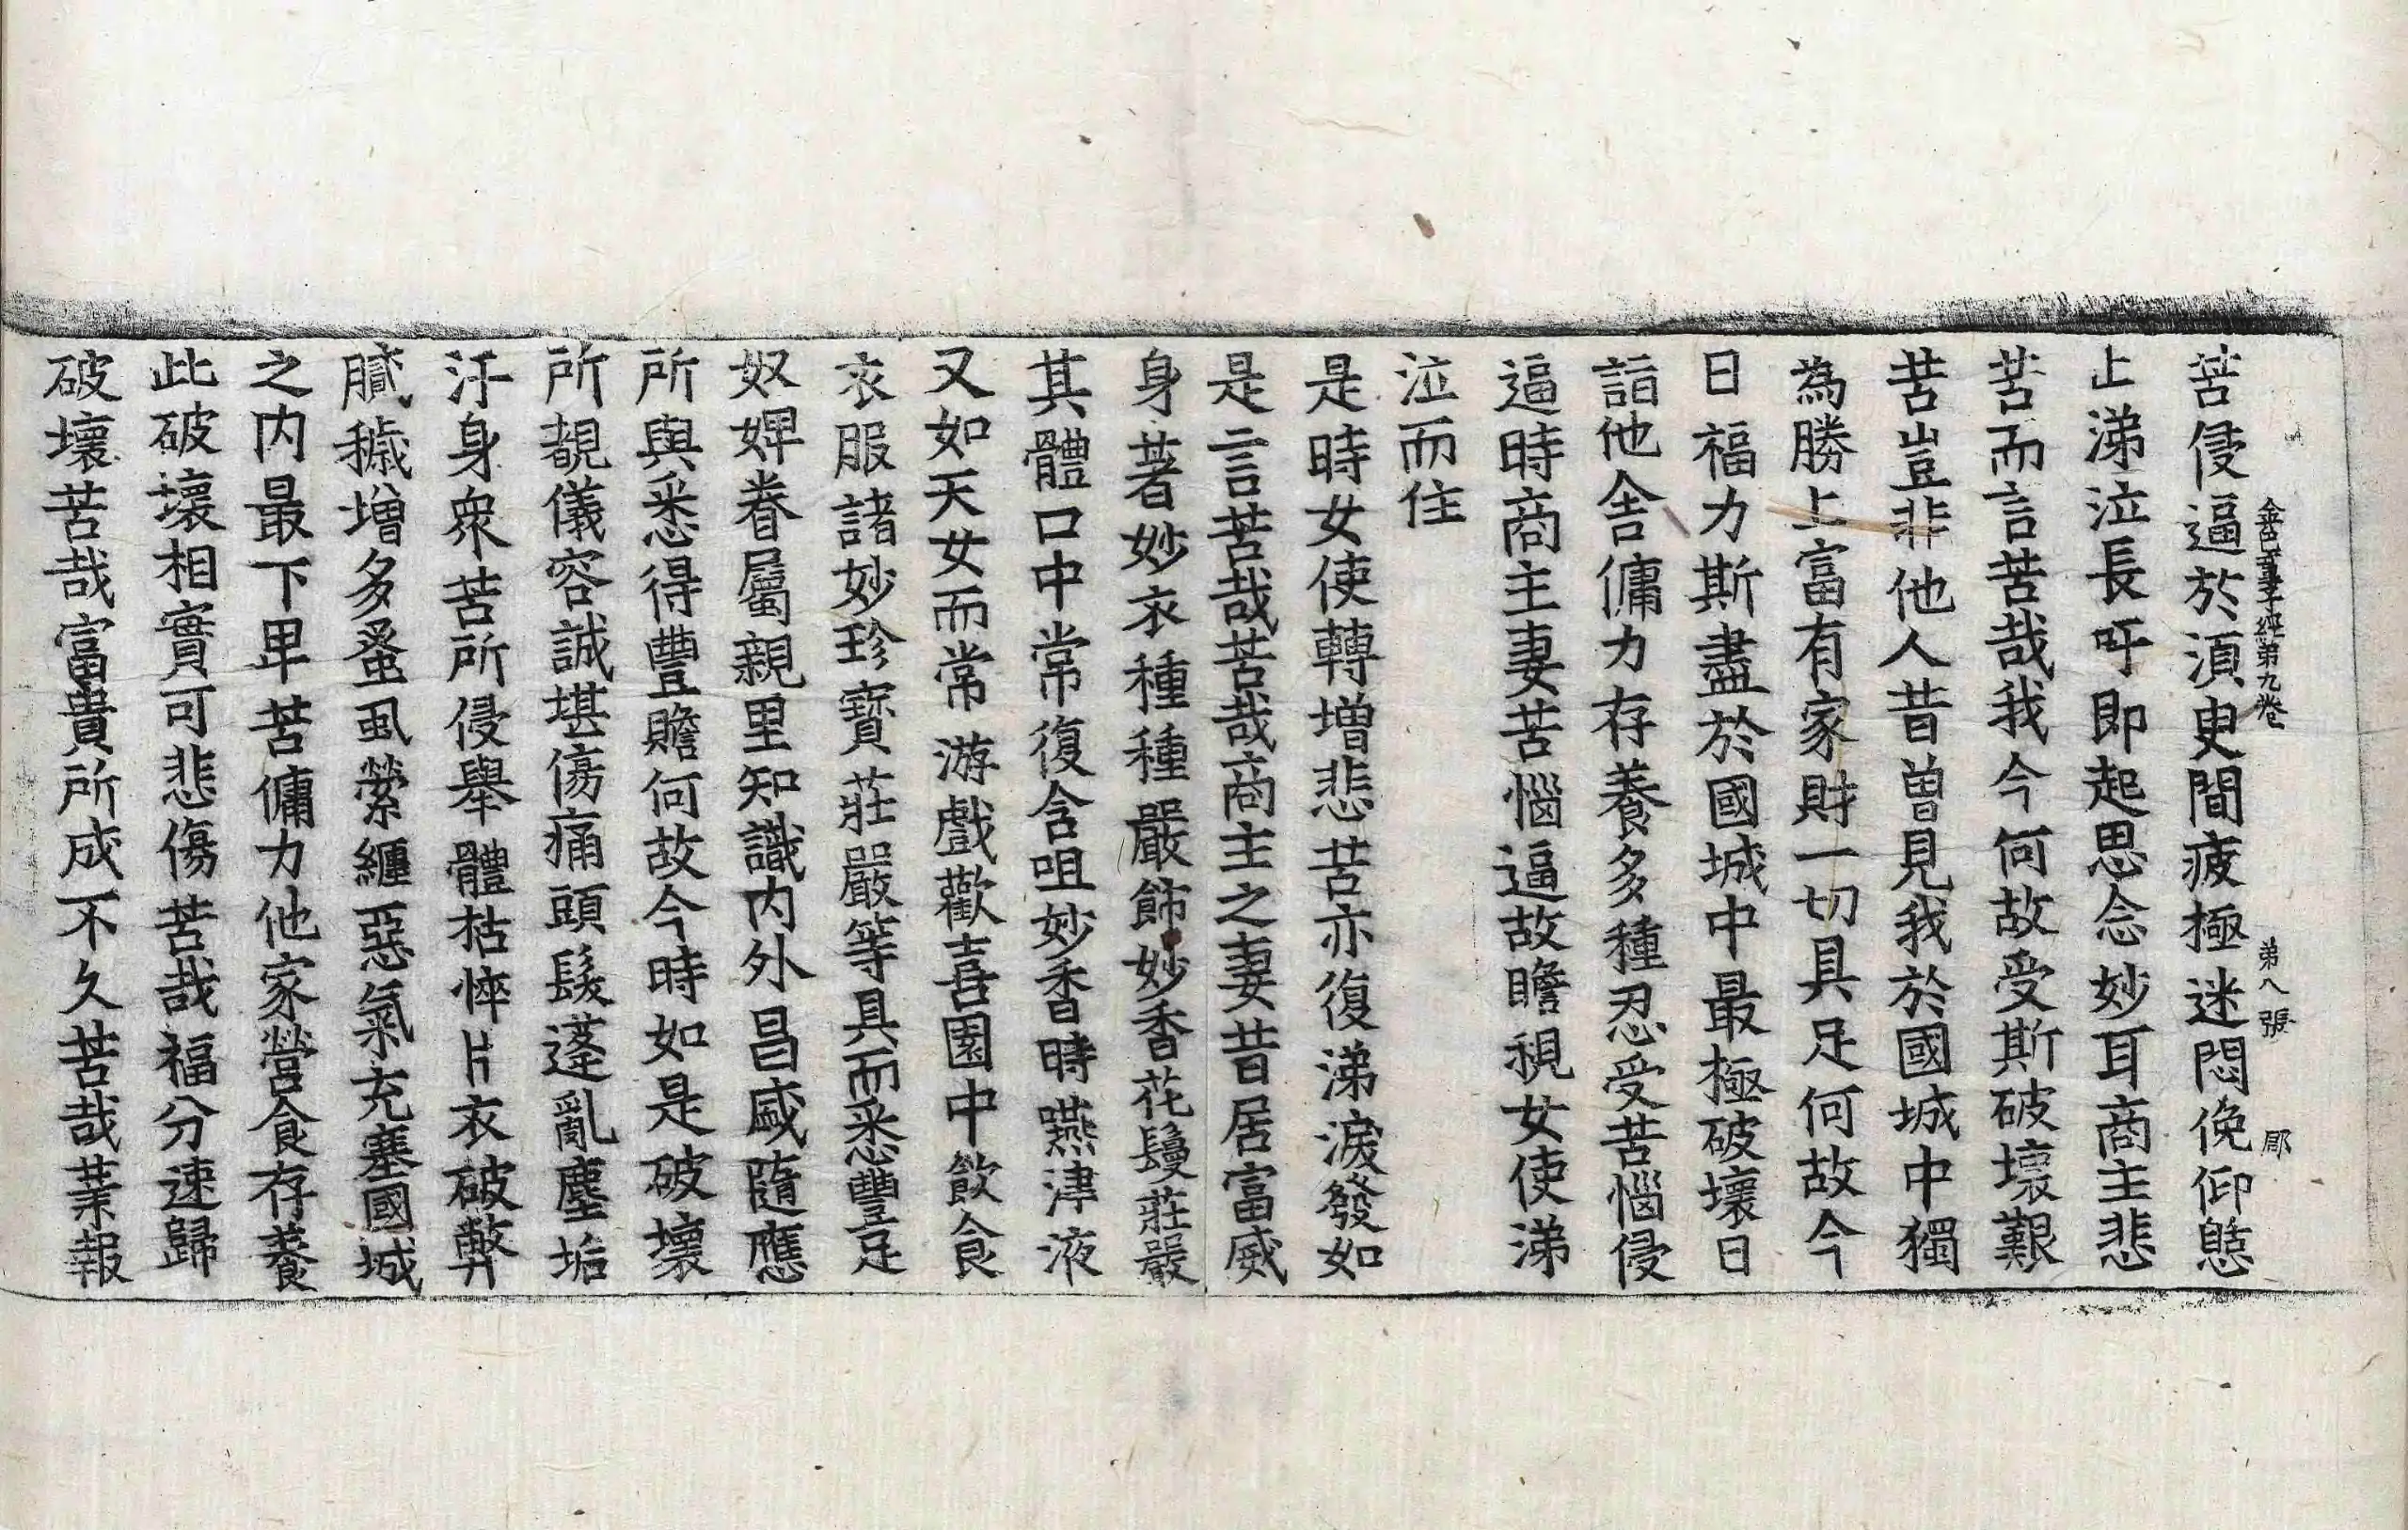 金色童子經第九卷 第八張 郿
苦侵逼於須臾間疲極迷悶俛仰憇
止涕泣長吁即起思念妙耳商主悲
苦而言苦哉我今何故受斯破壞艱
苦豈非他人昔曾見我於國城中獨
為勝上富有家財一切具足何故今
日福力斯盡於國城中最極破壞日
詣他舍傭力存養多種忍受苦惱侵
逼時商主妻苦惱逼故瞻視女使涕
泣而住
是時女使轉增悲苦亦復涕淚發如
是言苦哉苦哉商主之妻昔居富威
身著妙衣種種嚴飾妙香花鬘莊嚴
其體口中常復含咀妙香時嚥津液
又如天女而常游戲歡喜園中飲食
衣服諸妙珍寶莊嚴等具而悉豐足
奴婢眷屬親里知識内外昌盛隨應
所與悉得豐贍何故今時如是破壞
所覩儀容誠堪傷痛頭髮蓬亂塵垢
汙身衆苦所侵舉體枯悴片衣破弊
膩穢增多蚤虱縈纏惡氣充塞國城
之内最下卑苦傭力他家營食存養
此破壞相實可悲傷苦哉福分速歸
破壞苦哉富貴所成不久苦哉業報